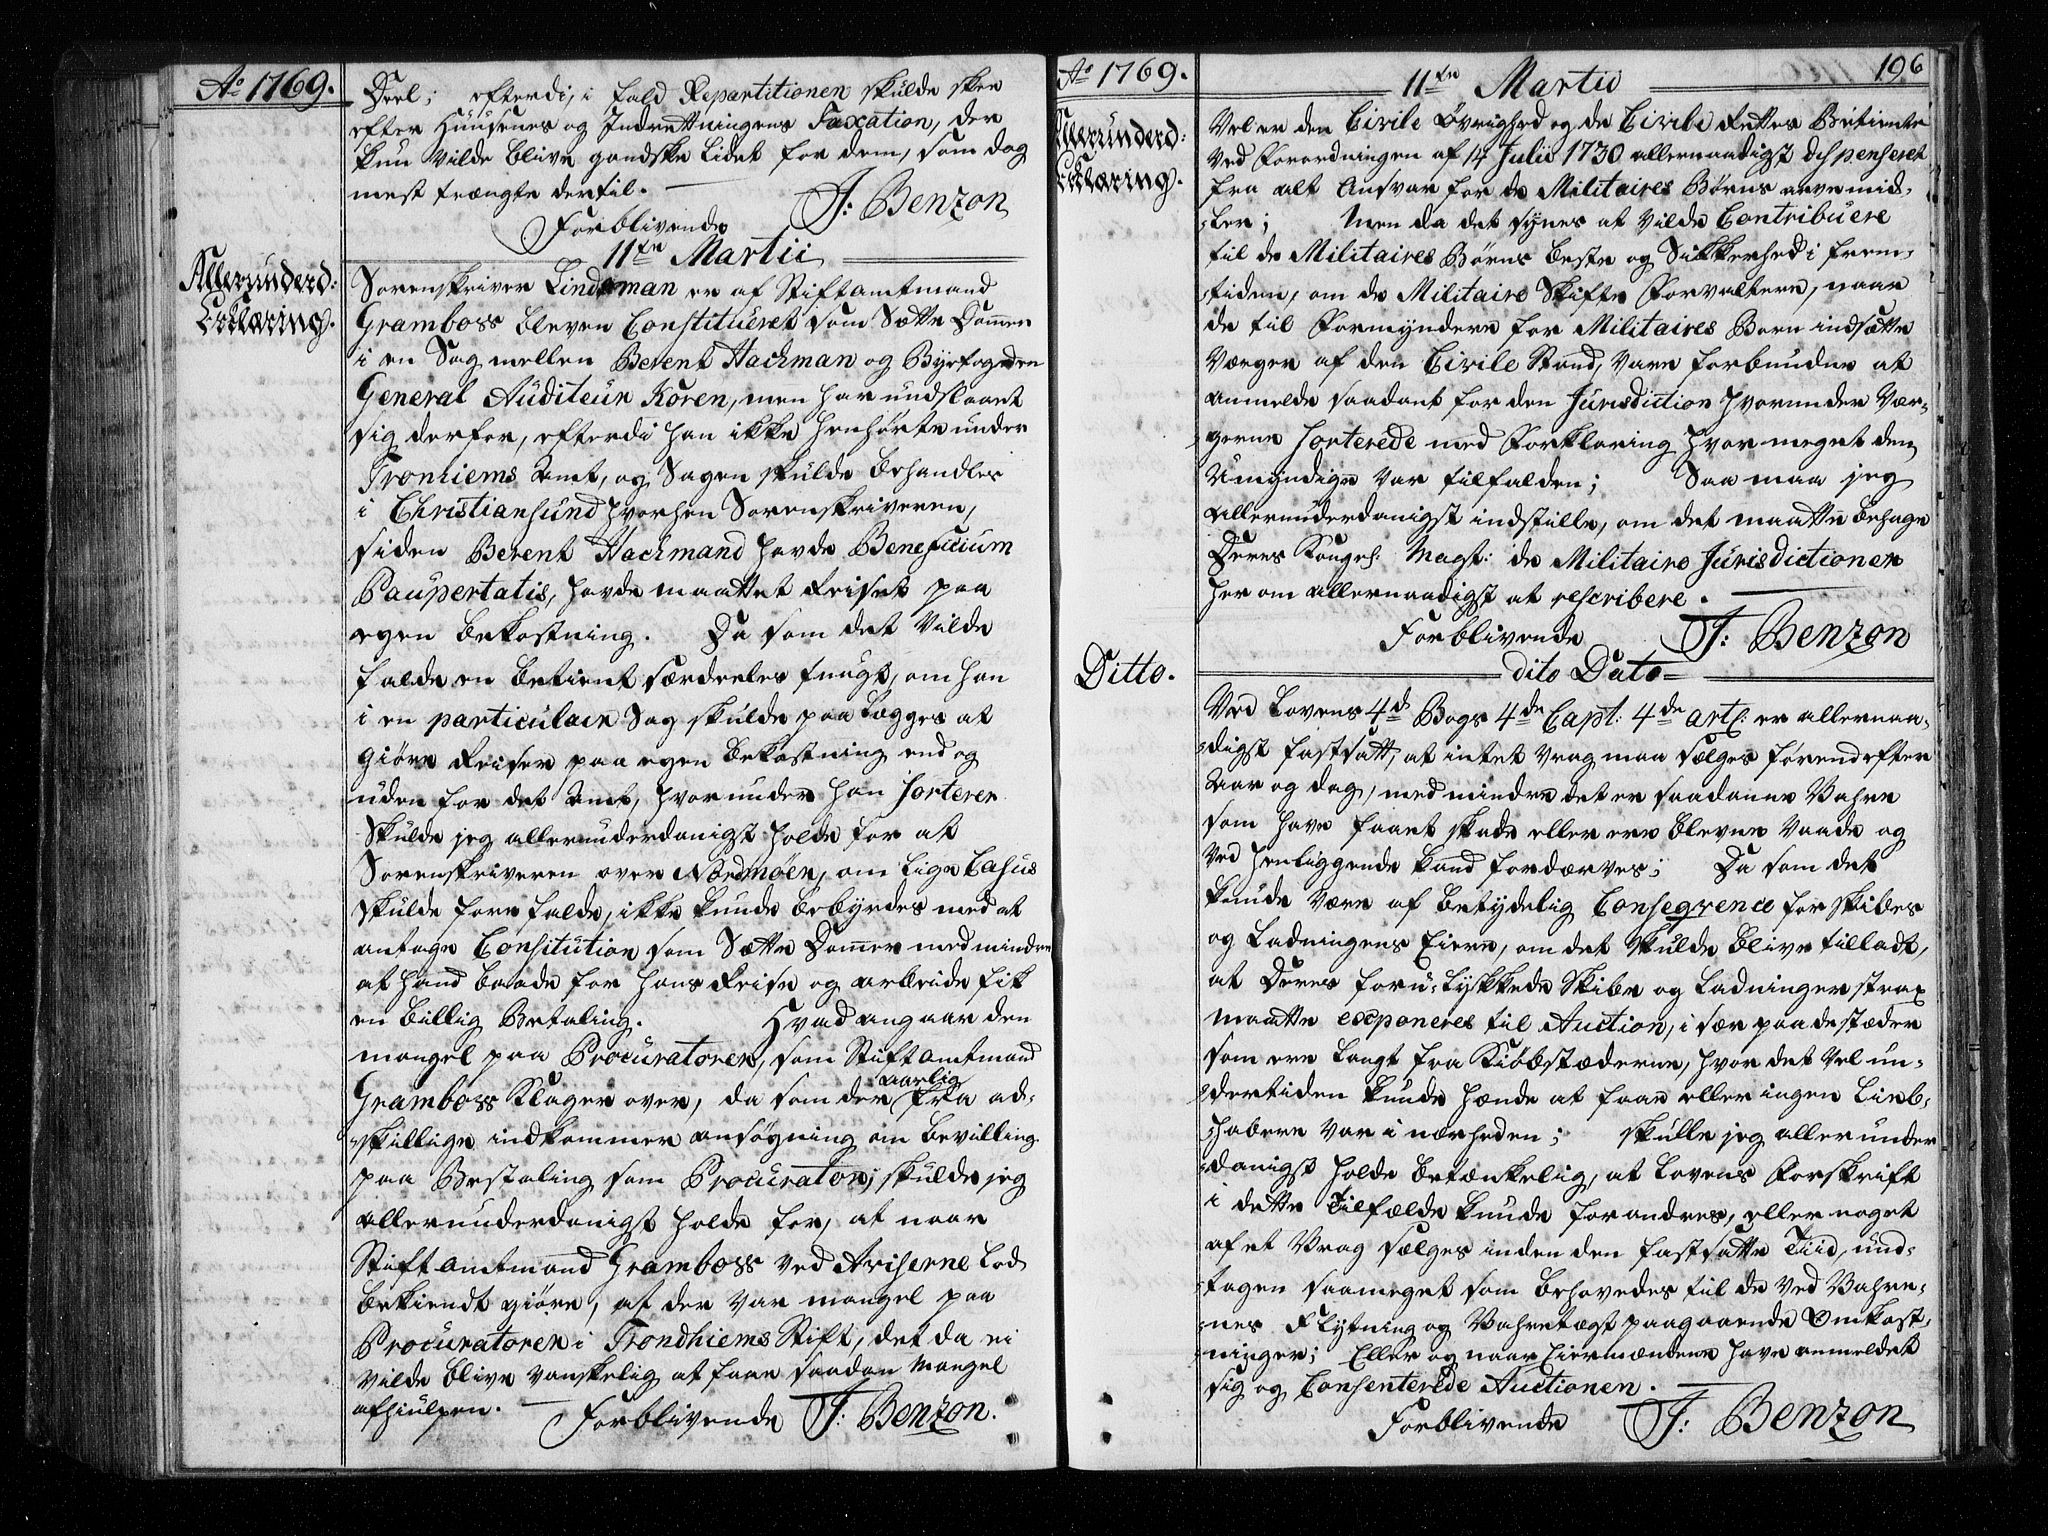 Ao 1769.
Deel; efterdi, i fald Repartitionen skulde skee
efter Huusenes og Indretningens Taxation, der
kun vilde blive gandske Lidet for dem, som dog
mest trængte dertil.
Forblivende J: Benzon
11te Martii
Allerunderd:
Erklæring.
Sorenskriver Lindeman er af Stiftamtmand
Gramboss bleven Constitueret som Sætte Dommer
i en Sag mellem Berent Hachman og Byefogeden
General Auditeur Koren, men har undslaaet
sig derfor, efterdi han ikke henhørte under
Tronhiems Amt, og Sagen skulde behandles
i Christiansund hvorhen Sorenskriveren,
siden Berent Hachmand havde Beneficium
Paupertatis, havde maattet Reiset paa
egen bekostning. Da som det vilde
falde en betient særdeeles tungt, om han
i en particulair Sag skulde paa Lægges at
giøre Reiser paa egen bekostning end og
uden for det Amt, hvorunder han sorterer
Skulde jeg allerunderdanigst holde for at
Sorenskriveren over Nordmøen, om lige Casus
skulde forefalde, ikke kunde bebyrdes med at
antage Consitution som Sætte Dommer med mindre
at hand baade for hans Reise og arbeide fik
en billig Betaling. Hvad angaar den
mangel paa Procuratorer, som Stiftamtmand
Gramboss klager over, da som der aarlig fra ad-
skillige indkommer ansøgning om bevilling
paa Bestaling som Procurator; skulde jeg
allerunderdanigst holde for, at naar
Stiftamtmand Gramboss ved Aviserne Lod
bekiendt giøre, at der var mangel paa
Procuratorer i Trondhiems Stift, det da ei
vilde blive vanskelig at faae saadan Mangel
afhiulpen.
Forblivende J: Benzon.
Ao 1769.
196
11te Martii
Allerunderd:
Erklæring.
Vel er den Civile Øvrighed og de Civile Rettes Betiente
ved Forordningen af 14 Julii 1730 allernaadigst dispenseret
fra alt Ansvar for de Militaires Børns arvemid-
ler; Men da det synes at vilde Contribuere
til de Militaires Børns beste og Sikkerhed i frem-
tiden, om de Militaire Skifte Forvaltere, naar
de til Formyndere for Militaires Børn indsætte
Værger af den Civile Stand, vare forbundne at
anmelde saadant for den Jurisdiction hvorunder Vær-
gerne sorterede med Forklaring hvor meget den
Umyndige var tilfalden; Saa maa jeg
allerunderdanigst indstille, om det maatte behage
Deres Kongel. Mayst: de Militaire Jurisdictioner
her om allernaadigst at rescribere.
Forblivende J: Benzon
dito Dato
Ditto.
Ved Lovens 4de Bogs 4de Capt: 4de artl: er allernaa-
digst fastsatt, at intet Vrag maa sælges førend efter
Aar og dag, med mindre det er saadanne Vahre
som have faaet skade eller ere blevne vaade og
ved henliggende kand fordærves; Da som det
kunde være af betydelig Conseqvence for skibes
og Ladningens Eiere, om det skulde blive tilladt,
at Deres foru-lykkede Skibe og Ladninger strax
maatte exponeres til Auction, i sær paa de stæder
som ere langt fra Kiøbstæderne, hvor det vel un-
dertiden kunde hænde at faae eller ingen Lieb-
habere var i nærheden; skulle jeg allerunder
danigst holde betænkelig, at Lovens Forskrift
i dette Tilfælde kunde forandres, eller noget
af et Vrag sælges inden den fastsatte Tiid, und-
tagen saameget som behøvedes til de ved Vahre-
nes Flytning og Vahretægt paagaaende Omkost-
ninger; Eller og naar Eiermændene have anmeldet
sig og Consenterede Auctionen.
Forblivende J: Benzon